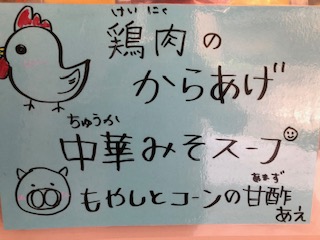 けいにく
鶏肉の
からあげ
ちゅうか
中華みそスープ
あまず
もやしとコーンの甘酢
あえ